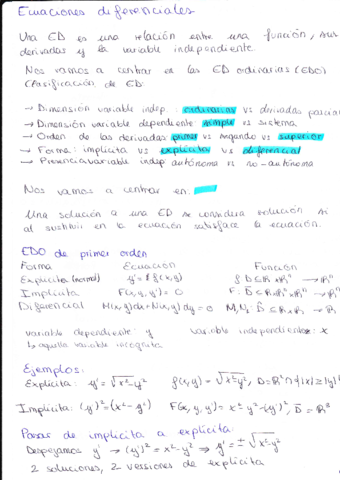 Ecuaciones diferenciales
Una ED es una relación entre una función, sus
derivadas y la variable independiente.
Nos vamos a centrar en las ED ordinarias (EDO)
Clasificación de ED:
→ Dimensión variable indep.: ordinarias vs derivadas parcial
→ Dimensión variable dependiente simple vs sistema
→ Orden de las derivadas primer vs segundo vs superior
→ Forma: implícita vs explícita vs diferencial
→ Presencia variable indep autónoma vs no-autónoma
Nos vamos a centrar en:
Una solución a una ED se considera solución si
al sustituir en la ecuación satisface la ecuación.
EDO de primer orden
Forma Ecuación Función
Explícita (normal) y' = f(x,y) f: D ⊆ R×Rⁿ → Rⁿ
Implícita F(x,y,y') = 0 F: D̄ ⊆ R×Rⁿ×Rⁿ → Rⁿ
Diferencial M(x,y)dx + N(x,y)dy = 0 M,N: D̄ ⊆ R×R → R
variable dependiente: y variable independiente: x
↳ aquella variable incógnita
Ejemplos:
Explícita: y' = √x²-y² f(x,y) = √x²-y², D = R² ∩ {|x| ≥ |y|}
Implícita: (y')² = (x²-y²) F(x,y,y') = x²-y²-(y')², D̄ = R³
Pasar de implícita a explícita:
Despejamos y' → (y')² = x²-y² ⇒ y' = ±√x²-y²
2 soluciones, 2 versiones de explícita